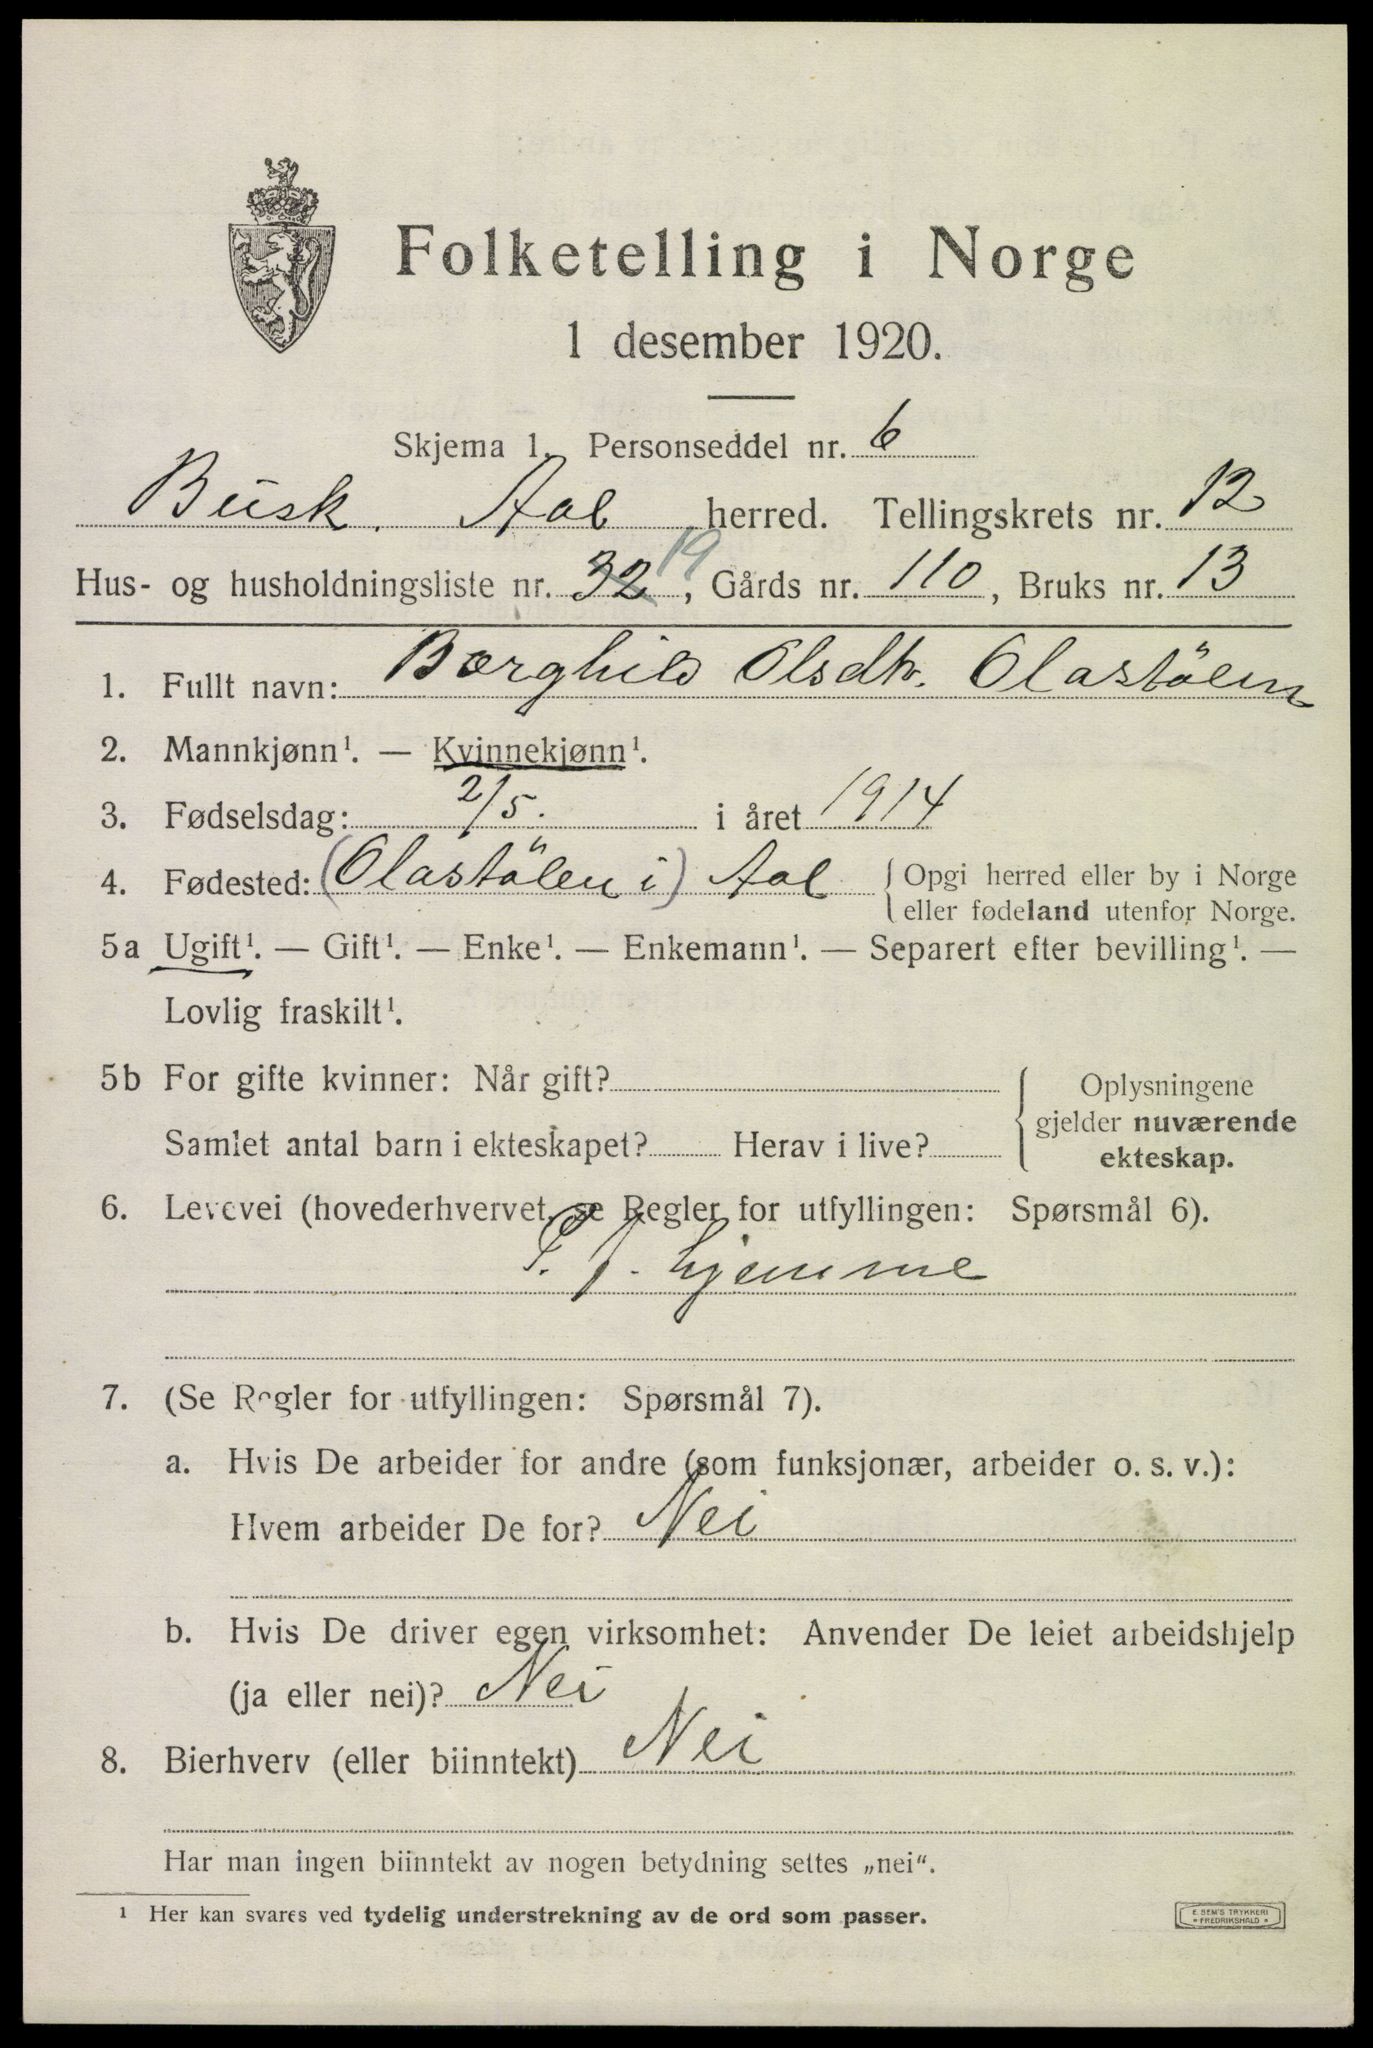 Folketelling i Norge
1 desember 1920.
Skjema 1. Personseddel nr. 6
Busk. Aal herred. Tellingskrets nr. 12
Hus- og husholdningsliste nr. 32 19, Gårds nr. 110, Bruks nr. 13
1. Fullt navn: Borghild Olsdtr. Olastölen
2. Mannkjønn¹. — Kvinnekjønn¹.
3. Fødselsdag: 2/5. i året 1914
4. Fødested: (Olastölen i) Aal { Opgi herred eller by i Norge
eller fødeland utenfor Norge.
5a Ugift¹. — Gift¹. — Enke¹. — Enkemann¹. — Separert efter bevilling¹. —
Lovlig fraskilt¹.
5b For gifte kvinner: Når gift?
Samlet antal barn i ekteskapet? Herav i live?
{ Oplysningene
gjelder nuværende
ekteskap.
6. Levevei (hovederhvervet, se Regler for utfyllingen: Spørsmål 6).
hjemme
7. (Se Regler for utfyllingen: Spørsmål 7).
a. Hvis De arbeider for andre (som funksjonær, arbeider o. s. v.):
Hvem arbeider De for? Nei
b. Hvis De driver egen virksomhet: Anvender De leiet arbeidshjelp
(ja eller nei)? Nei
8. Bierhverv (eller biinntekt) Nei
Har man ingen biinntekt av nogen betydning settes „nei".
¹ Her kan svares ved tydelig understrekning av de ord som passer.
E. SEM'S TRYKKERI
FREDRIKSHALD